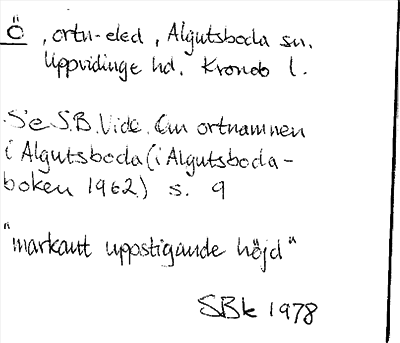 Ö , ortn-eled , Algutsboda sn.
Uppvidinge hd. Kronob l.
Se S.B. Vide. Om ortnamnen
i Algutsboda (i Algutsboda-
boken 1962) s. 9
"markant uppstigande höjd"
SBk 1978